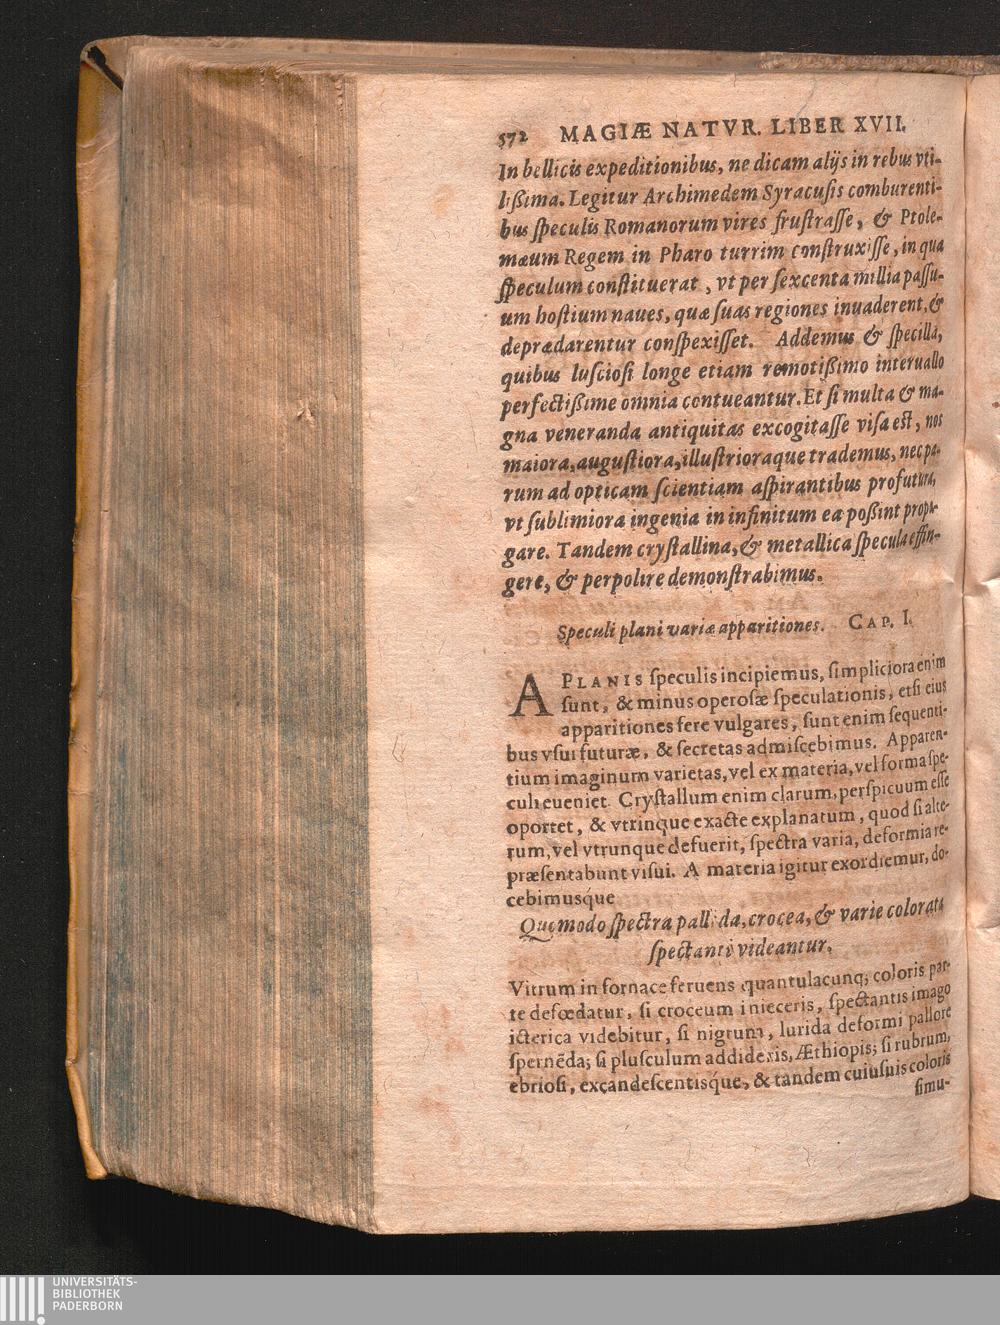 572 MAGIÆ NATVR. LIBER XVII.
In bellicis expeditionibus, ne dicam alijs in rebus vti-
lißima. Legitur Archimedem Syracusis comburenti-
bus speculis Romanorum vires frustrasse, & Ptole-
mæum Regem in Pharo turrim construxisse, in qua
speculum constituerat, vt per sexcenta millia passu-
um hostium naues, quæ suas regiones inuaderent, &
deprædarentur conspexisset. Addemus & specilla,
quibus lusciosi longe etiam remotißimo interuallo
perfectißime omnia contueantur. Et si multa & ma-
gna veneranda antiquitas excogitasse visa est, nos
maiora, augustiora, illustrioraque trademus, nec pa-
rum ad opticam scientiam aspirantibus profutura,
vt sublimiora ingenia in infinitum ea poßint propa-
gare. Tandem crystallina, & metallica specula effin-
gere, & perpolire demonstrabimus.
Speculi plani variæ apparitiones. CAP. I.
A PLANIS speculis incipiemus, simpliciora enim
sunt, & minus operosæ speculationis, etsi eius
apparitiones fere vulgares, sunt enim sequenti-
bus vsui futuræ, & secretas admiscebimus. Apparen-
tium imaginum varietas, vel ex materia, vel forma spe-
culi eueniet. Crystallum enim clarum, perspicuum esse
oportet, & vtrinque exacte explanatum, quod si alte-
rum, vel vtrunque defuerit, spectra varia, deformia re-
præsentabunt visui. A materia igitur exordiemur, do-
cebimusq́ue
Quomodo spectra pallida, crocea, & varie colorata
spectanti videantur.
Vitrum in fornace feruens quantulacunq; coloris par-
te defœdatur, si croceum inieceris, spectantis imago
icterica videbitur, si nigrum, lurida deformi pallore
spernẽda; si plusculum addideris, Æthiopis; si rubrum,
ebriosi, excandescentisq́ue, & tandem cuiusuis coloris
simu-
UNIVERSITÄTS-
BIBLIOTHEK
PADERBORN